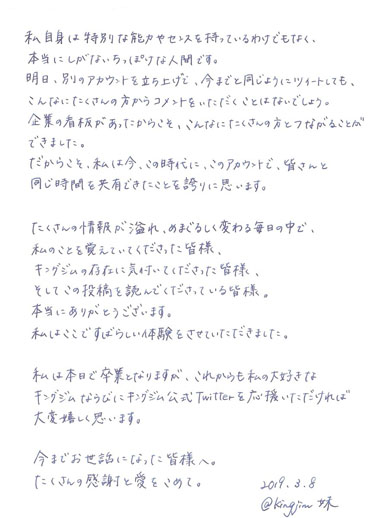 私自身は特別な能力やセンスを持っているわけでもなく、
本当にしがないちっぽけな人間です。
明日、別のアカウントを立ち上げて、今までと同じようにツイートしても、
こんなにたくさんの方からコメントをいただくことはないでしょう。
企業の看板があったからこそ、こんなにたくさんの方とつながることが
できました。
だからこそ、私は今、この時代に、このアカウントで、皆さんと
同じ時間を共有できたことを誇りに思います。
たくさんの情報が溢れ、めまぐるしく変わる毎日の中で、
私のことを覚えていてくださった皆様、
キングジムの存在に気付いてくださった皆様、
そしてこの投稿を読んでくださっている皆様。
本当にありがとうございます。
私はここですばらしい体験をさせていただきました。
私は本日で卒業となりますが、これからも私の大好きな
キングジムならびにキングジム公式Twitterを応援いただければ
大変嬉しく思います。
今までお世話になった皆様へ。
たくさんの感謝と愛をこめて。
2019.3.8
@kingjim 妹